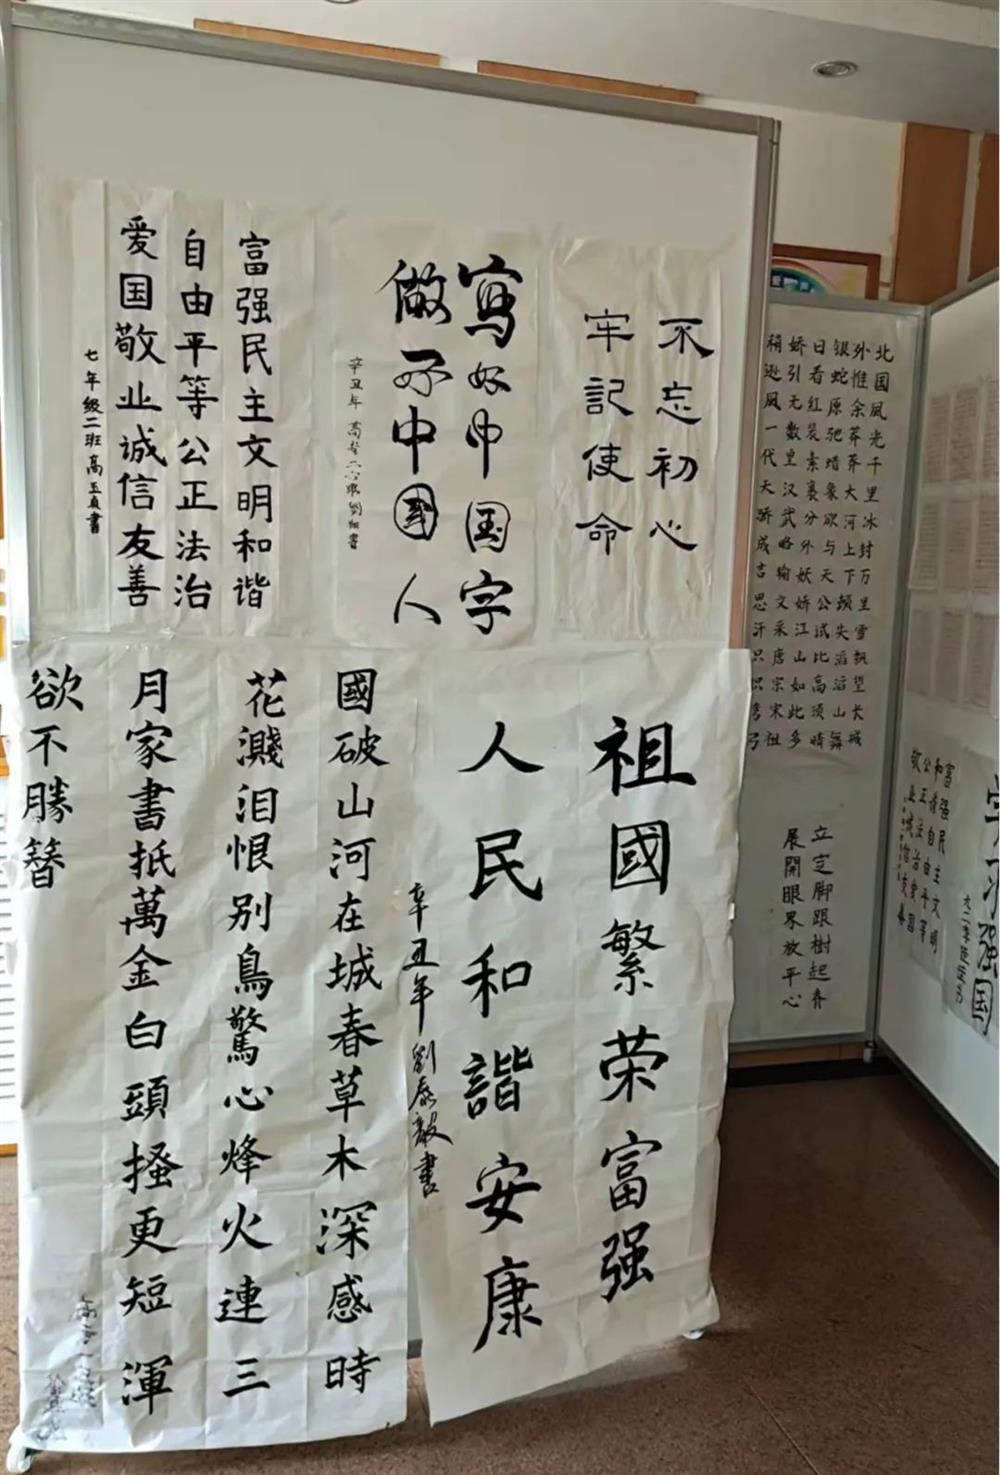 富强民主文明和谐
自由平等公正法治
爱国敬业诚信友善
七年级二班高玉贞書
寫好中国字
做好中國人
辛丑年
不忘初心
牢記使命
國破山河在城春草木深感時
花濺泪恨别鳥驚心烽火連三
月家書抵萬金白頭搔更短渾
欲不勝簪
祖國繁荣富强
人民和諧安康
辛丑年劉泰毅書
北国風光千里冰封万里雪飘望长城
外惟余莽莽大河上下顿失滔滔山舞
银蛇原驰蜡象欲与天公试比高须晴
日看红装素裹分外妖娇江山如此多
娇引无数里汉武略输文采唐宗宋祖
稍逊風一代天骄成吉思汗只识弯弓
立定脚跟樹起脊
展開眼界放平心
富强民主文明
和谐自由平等
公正法治爱国
敬业诚信友善
学习强国